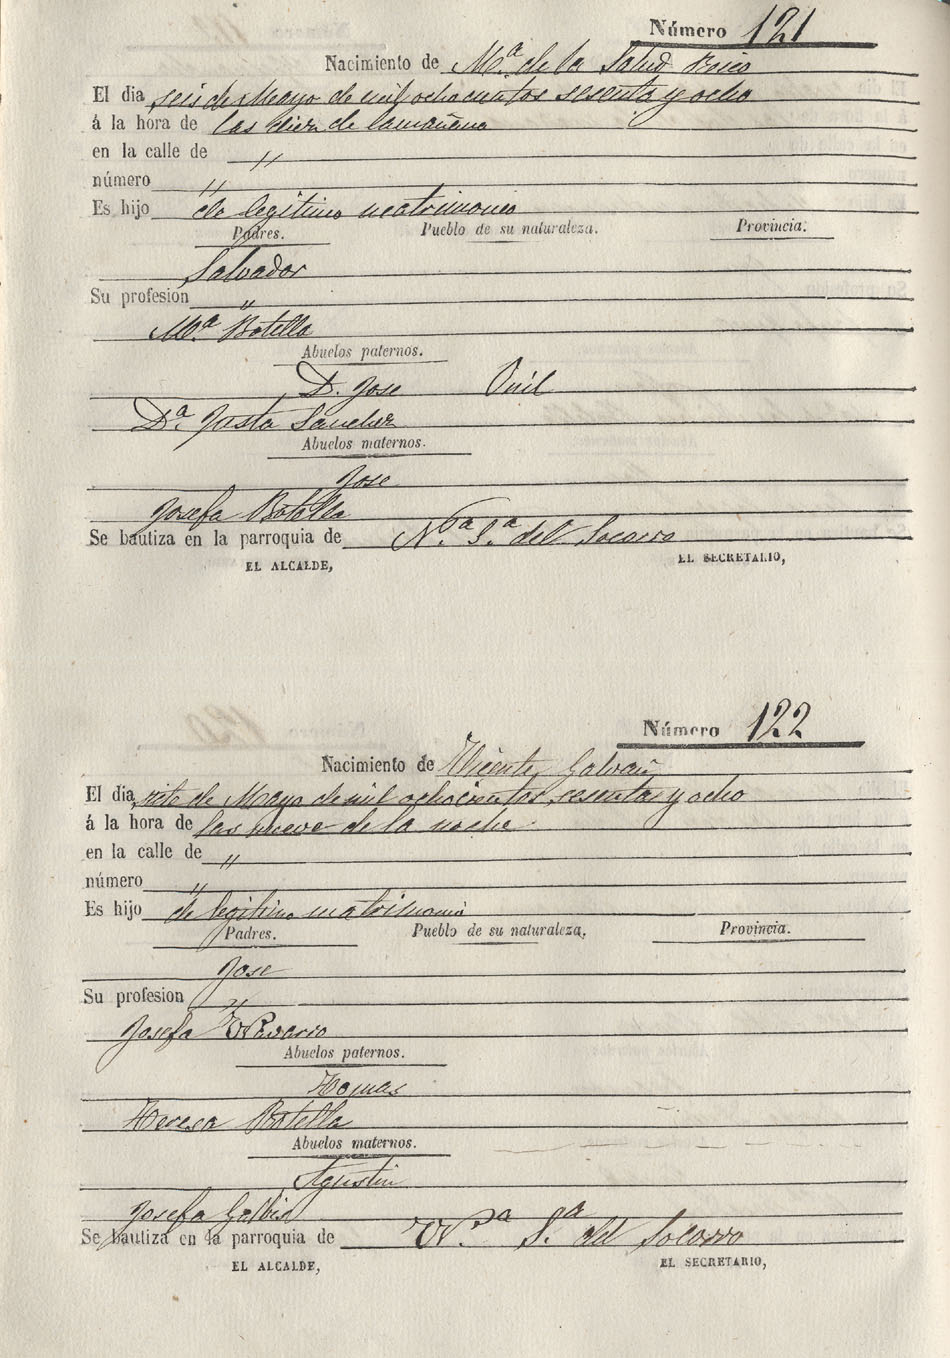 Número 121
Nacimiento de Mª. de la Salud
El dia seis de Mayo de mil ochocientos sesenta y ocho
á la hora de las diez de la mañana
en la calle de "
número "
Es hijo de legitimo matrimonio
Padres. Pueblo de su naturaleza. Provincia.
Salvador
Su profesion "
Mª Botella
Abuelos paternos.
D. Jose
Dª. Justa Sanchez
Abuelos maternos.
Jose
Josefa Botella
Se bautiza en la parroquia de N.ª S.ª del Socorro
EL ALCALDE, EL SECRETARIO,
Número 122
Nacimiento de Vicente Galvañ
El dia siete de Mayo de mil ochocientos sesenta y ocho
á la hora de las nueve de la noche
en la calle de "
número "
Es hijo de legitimo matrimonio
Padres. Pueblo de su naturaleza. Provincia.
Jose
Su profesion "
Josefa Navarro
Abuelos paternos.
Tomas
Teresa Botella
Abuelos maternos.
Agustin
Josefa Galbis
Se bautiza en la parroquia de N.ª S.ª del Socorro
EL ALCALDE, EL SECRETARIO,